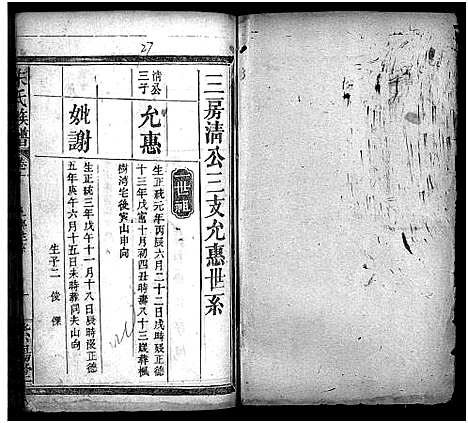 27
三房清公三支允惠世系
一世祖
清公
三子
允惠
生正統元年丙辰六月二十二日戌時歿正德
十三年戊寅十月初四丑時壽八十三歲葬楓
樹灣宅後寅山申向
妣謝
生正統三年戊午十一月十八日辰時歿正德
五年庚午六月十五日未時葬同夫山向
生子二 俊 傑
氏族譜